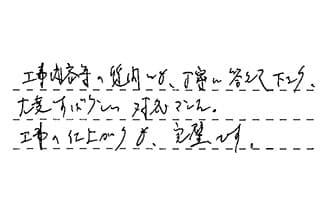 工事内容等の質問にも、丁寧に答えて下さり、
大変すばらしい対応でした。
工事の仕上がりも、完璧です。